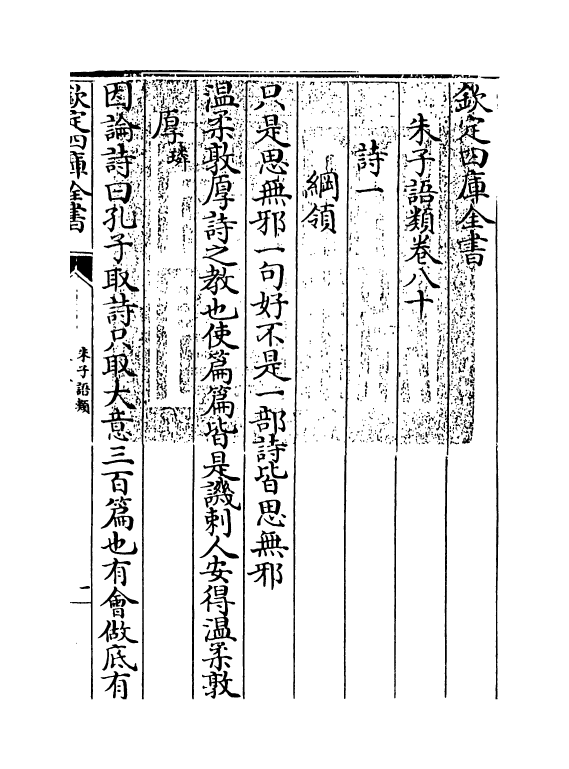 欽定四庫全書
朱子語類卷八十
詩一
綱領
只是思無邪一句好不是一部詩皆思無邪
温柔敦厚詩之教也使篇篇皆是譏刺人安得温柔敦
厚璘
因論詩曰孔子取詩只取大意三百篇也有㑹做底有
欽定四庫全書
朱子語類
一